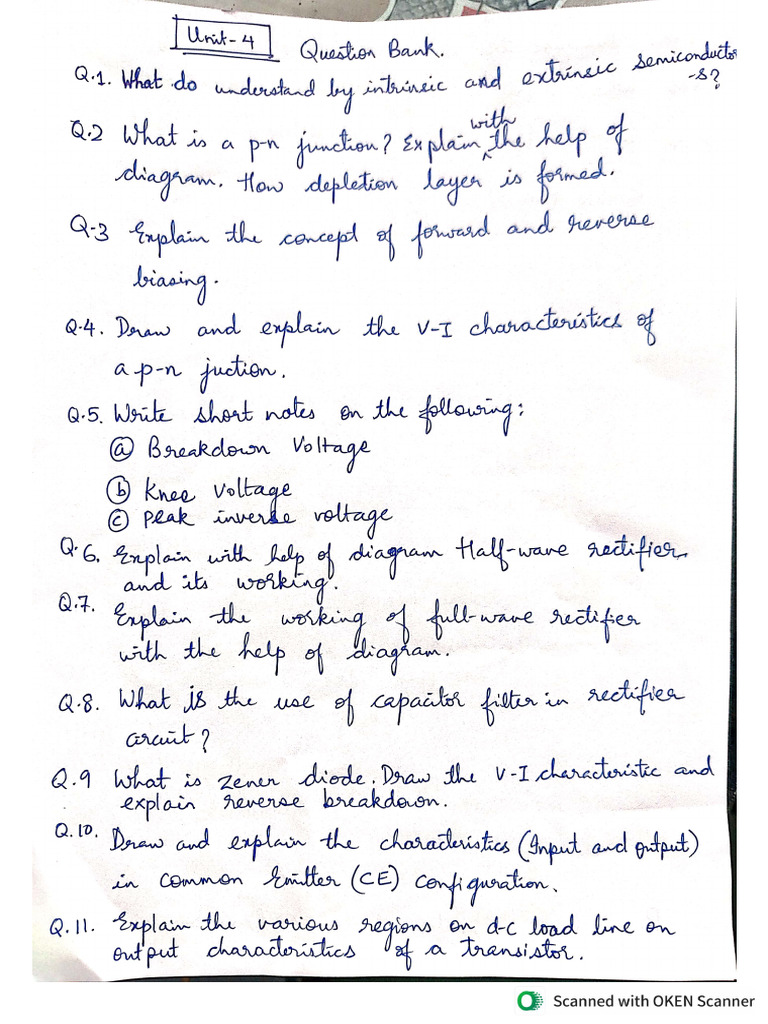 Unit-4
Question Bank.
Q.1. What do understand by intrinsic and extrinsic semiconductor
-s?
Q.2 What is a p-n junction? Explain with the help of
diagram. How depletion layer is formed.
Q-3 Explain the concept of forward and reverse
biasing.
Q.4. Draw and explain the V-I characteristics of
a p-n juction.
Q.5. Write short notes on the following:
(a) Breakdown Voltage
(b) Knee Voltage
(c) Peak inverse voltage
Q.6. Explain with help of diagram Half-wave rectifier
and its working.
Q.7. Explain the working of full-wave rectifier
with the help of diagram.
Q.8. What is the use of capacitor filter in rectifier
circuit?
Q.9 What is zener diode. Draw the V-I characteristic and
explain reverse breakdown.
Q.10. Draw and explain the characteristics (Input and output)
in common Emitter (CE) configuration.
Q.11. Explain the various regions on d-c load line on
output characteristics of a transistor.
Scanned with OKEN Scanner